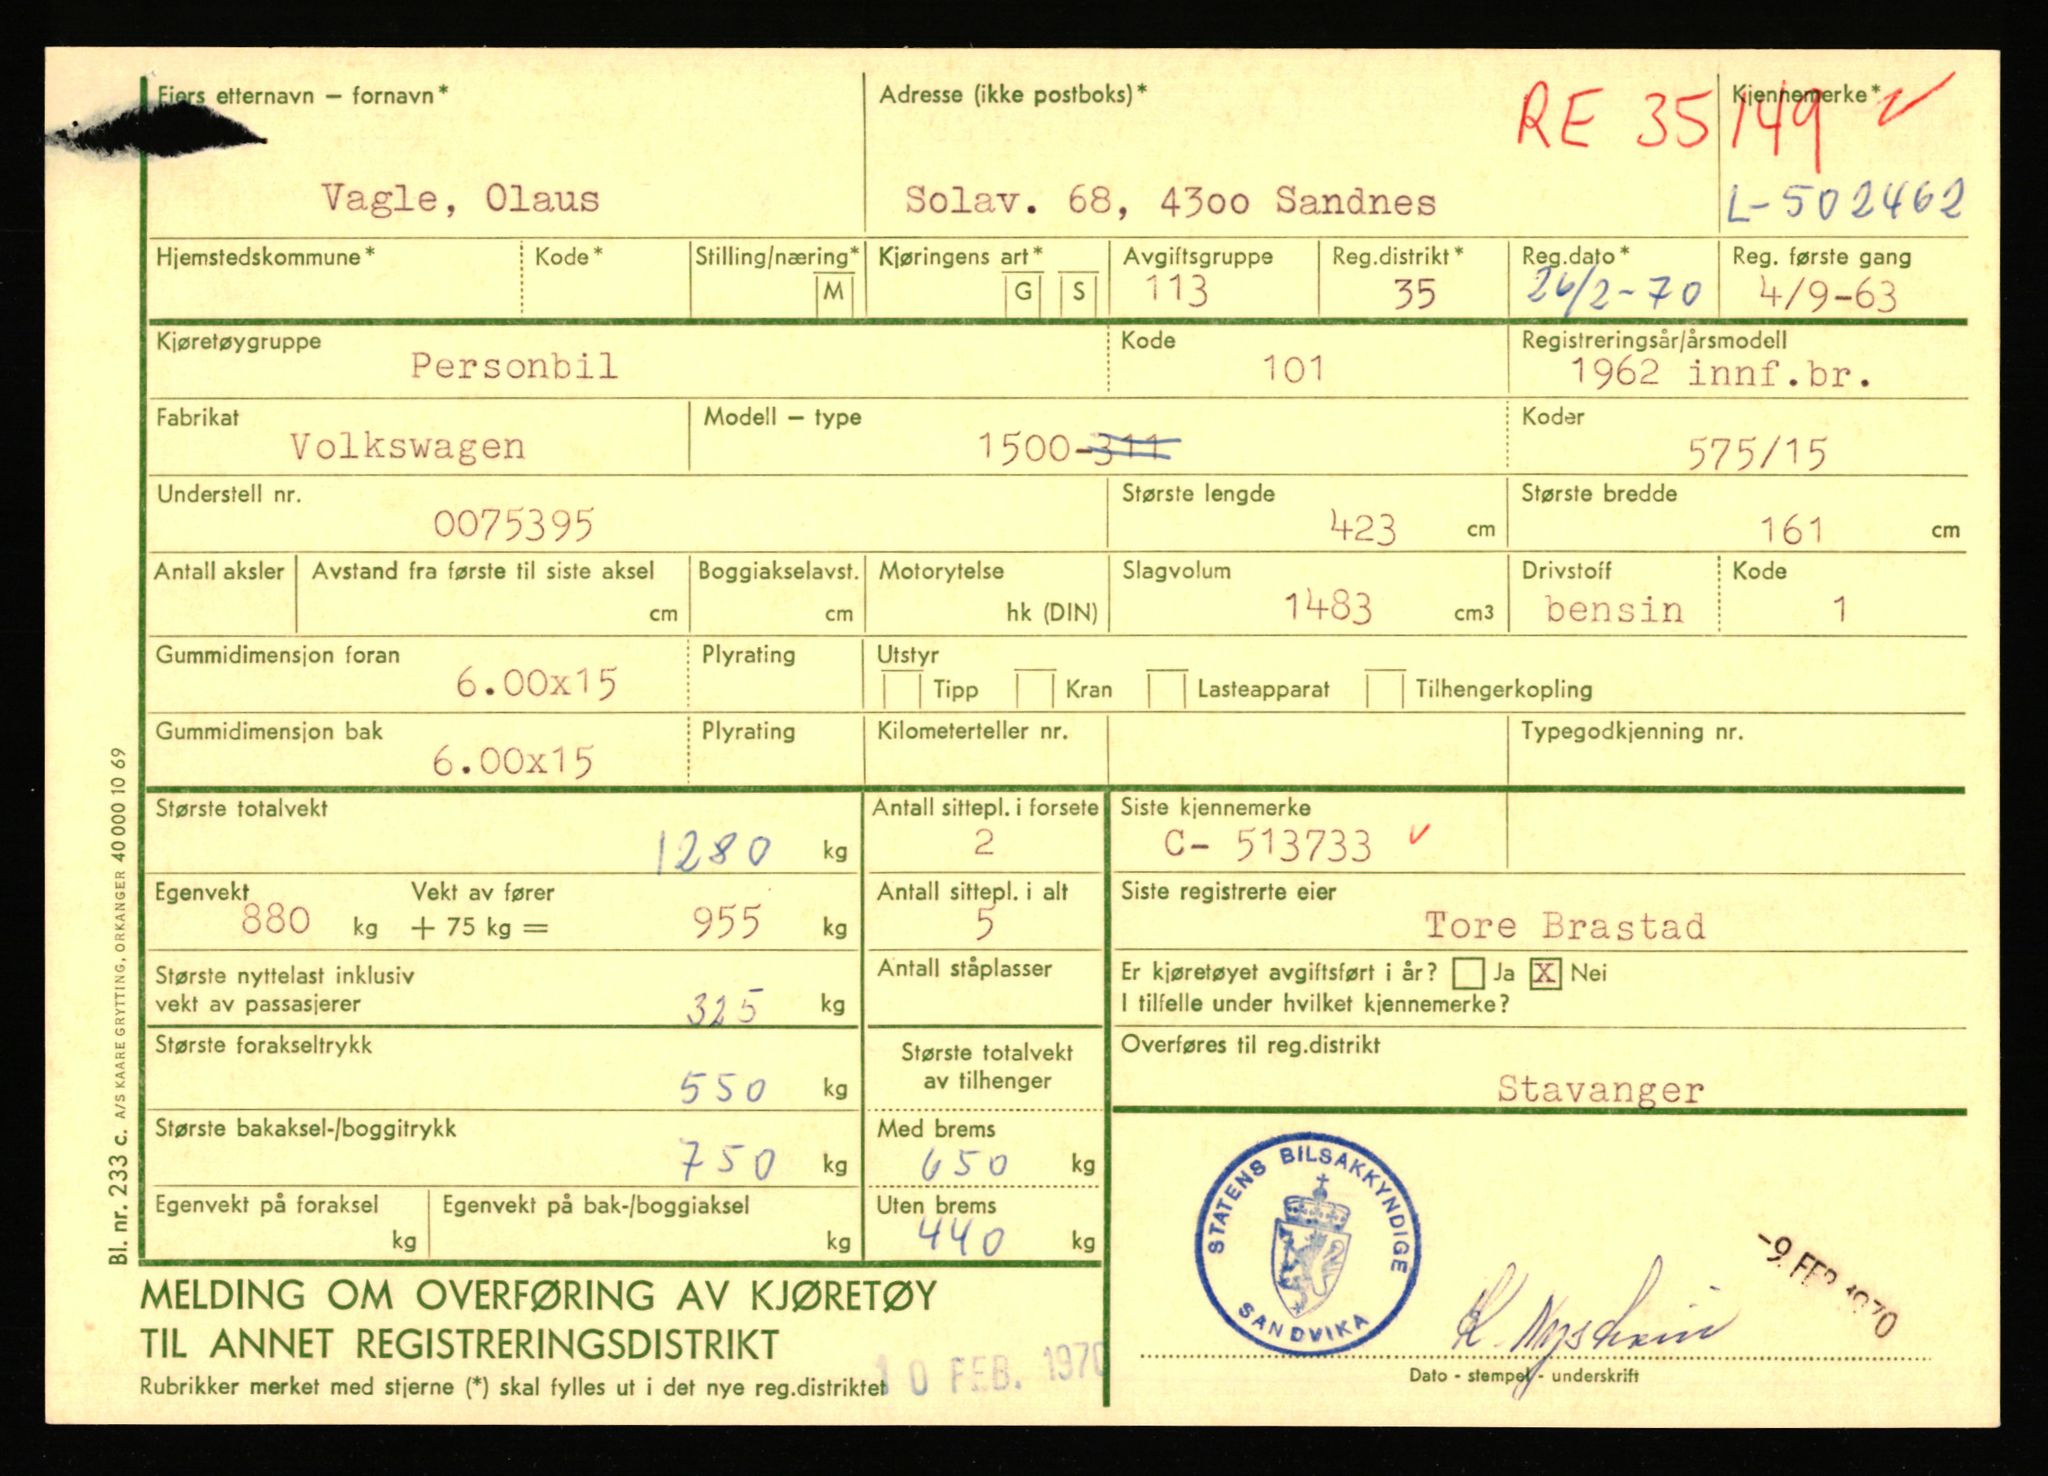 Eiers etternavn – fornavn* Adresse (ikke postboks)* Kjennemerke*
RE 35149 ✓
Vagle, Olaus Solav. 68, 4300 Sandnes L-502462
Hjemstedskommune* Kode* Stilling/næring* Kjøringens art* Avgiftsgruppe Reg.distrikt* Reg.dato* Reg. første gang
M G S 113 35 26/2-70 4/9-63
Kjøretøygruppe Kode Registreringsår/årsmodell
Personbil 101 1962 innf.br.
Fabrikat Modell – type Koder
Volkswagen 1500-311 575/15
Understell nr. Største lengde Største bredde
0075395 423 cm 161 cm
Antall aksler Avstand fra første til siste aksel Boggiakselavst. Motorytelse Slagvolum Drivstoff Kode
cm cm hk (DIN) 1483 cm3 bensin 1
Gummidimensjon foran Plyrating Utstyr
6.00x15 Tipp Kran Lasteapparat Tilhengerkopling
Gummidimensjon bak Plyrating Kilometerteller nr. Typegodkjenning nr.
6.00x15
Største totalvekt Antall sittepl. i forsete Siste kjennemerke
1280 kg 2 C- 513733 ✓
Egenvekt Vekt av fører Antall sittepl. i alt Siste registrerte eier
880 kg + 75 kg = 955 kg 5 Tore Brastad
Største nyttelast inklusiv Antall ståplasser Er kjøretøyet avgiftsført i år? Ja X Nei
vekt av passasjerer 325 kg I tilfelle under hvilket kjennemerke?
Største forakseltrykk Største totalvekt Overføres til reg.distrikt
550 kg av tilhenger Stavanger
Største bakaksel-/boggitrykk Med brems
750 kg 650 kg
Egenvekt på foraksel Egenvekt på bak-/boggiaksel Uten brems
kg kg 440 kg
STATENS BILSAKKYNDIGE
SANDVIKA
-9. FEB 1970
MELDING OM OVERFØRING AV KJØRETØY
TIL ANNET REGISTRERINGSDISTRIKT
Rubrikker merket med stjerne (*) skal fylles ut i det nye reg.distriktet
10 FEB. 1970
Dato - stempel - underskrift
Bl. nr. 233 c. A/S KAARE GRYTTING, ORKANGER 40 000 10 69